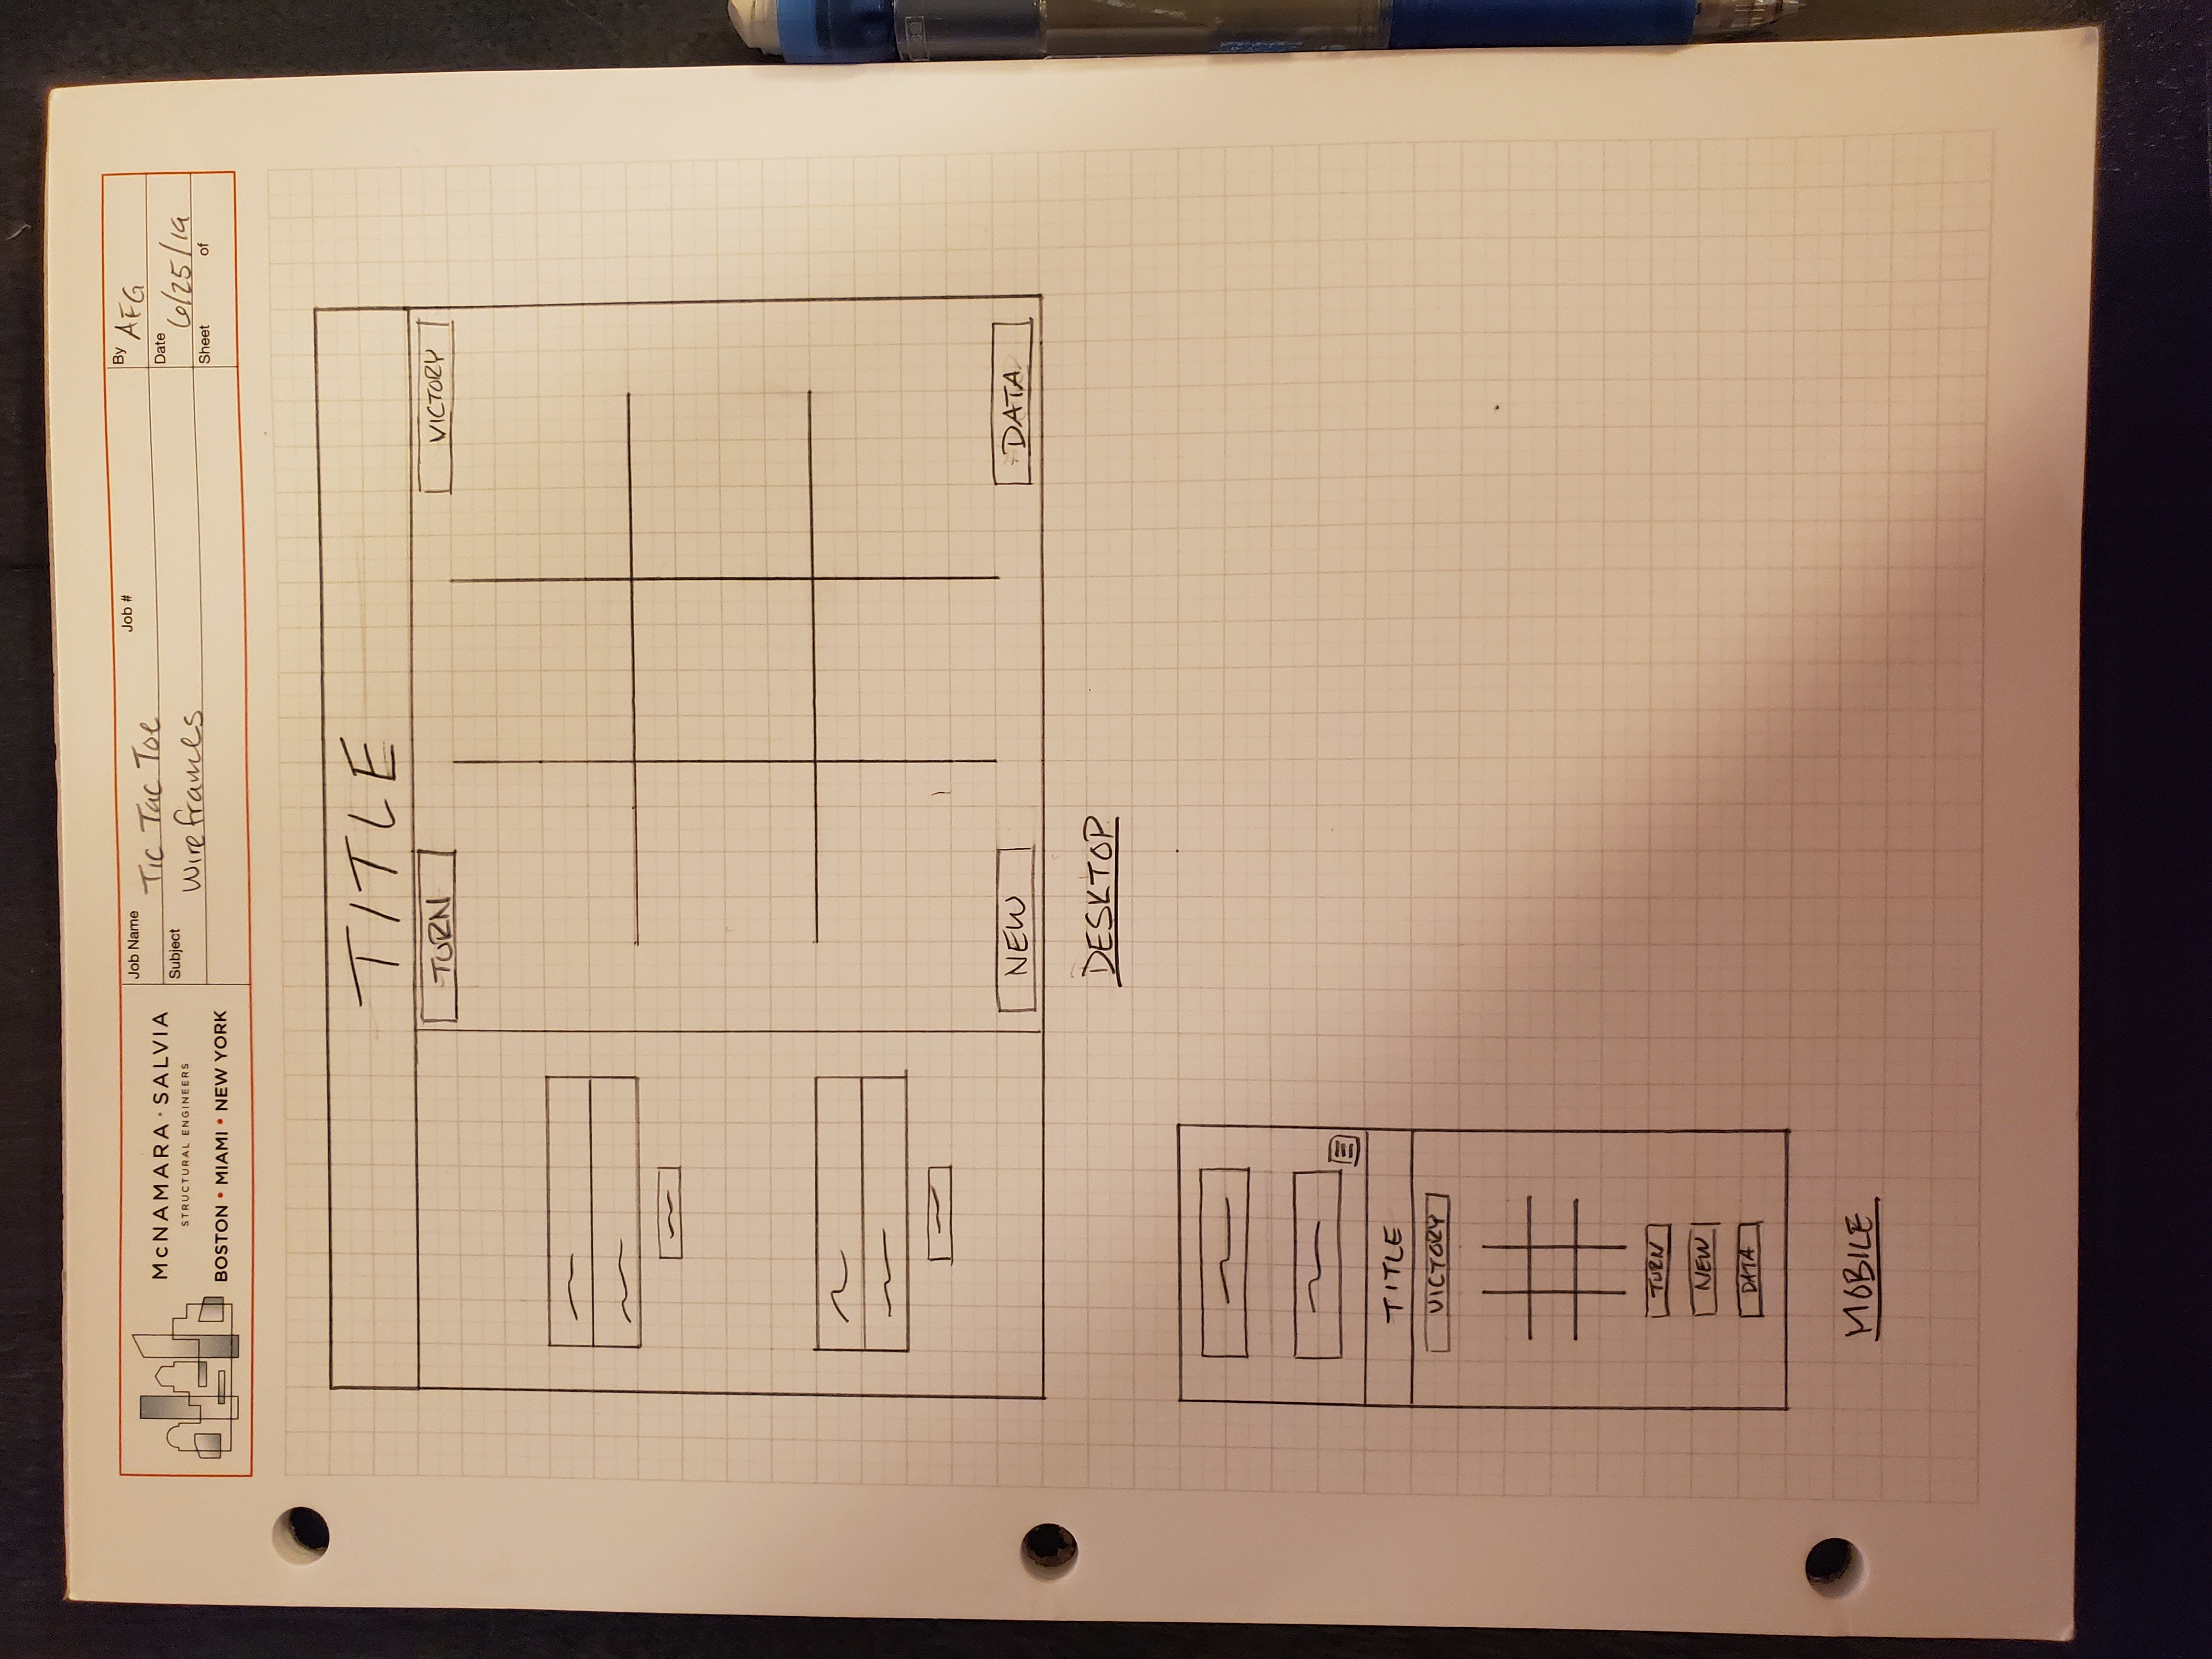 McNAMARA · SALVIA
STRUCTURAL ENGINEERS
BOSTON • MIAMI • NEW YORK
Job Name Tic Tac Toe Job #
Subject Wireframes
By AFG
Date 6/25/19
Sheet of
TITLE
TURN VICTORY
NEW DATA
DESKTOP
TITLE
VICTORY
TURN
NEW
DATA
MOBILE